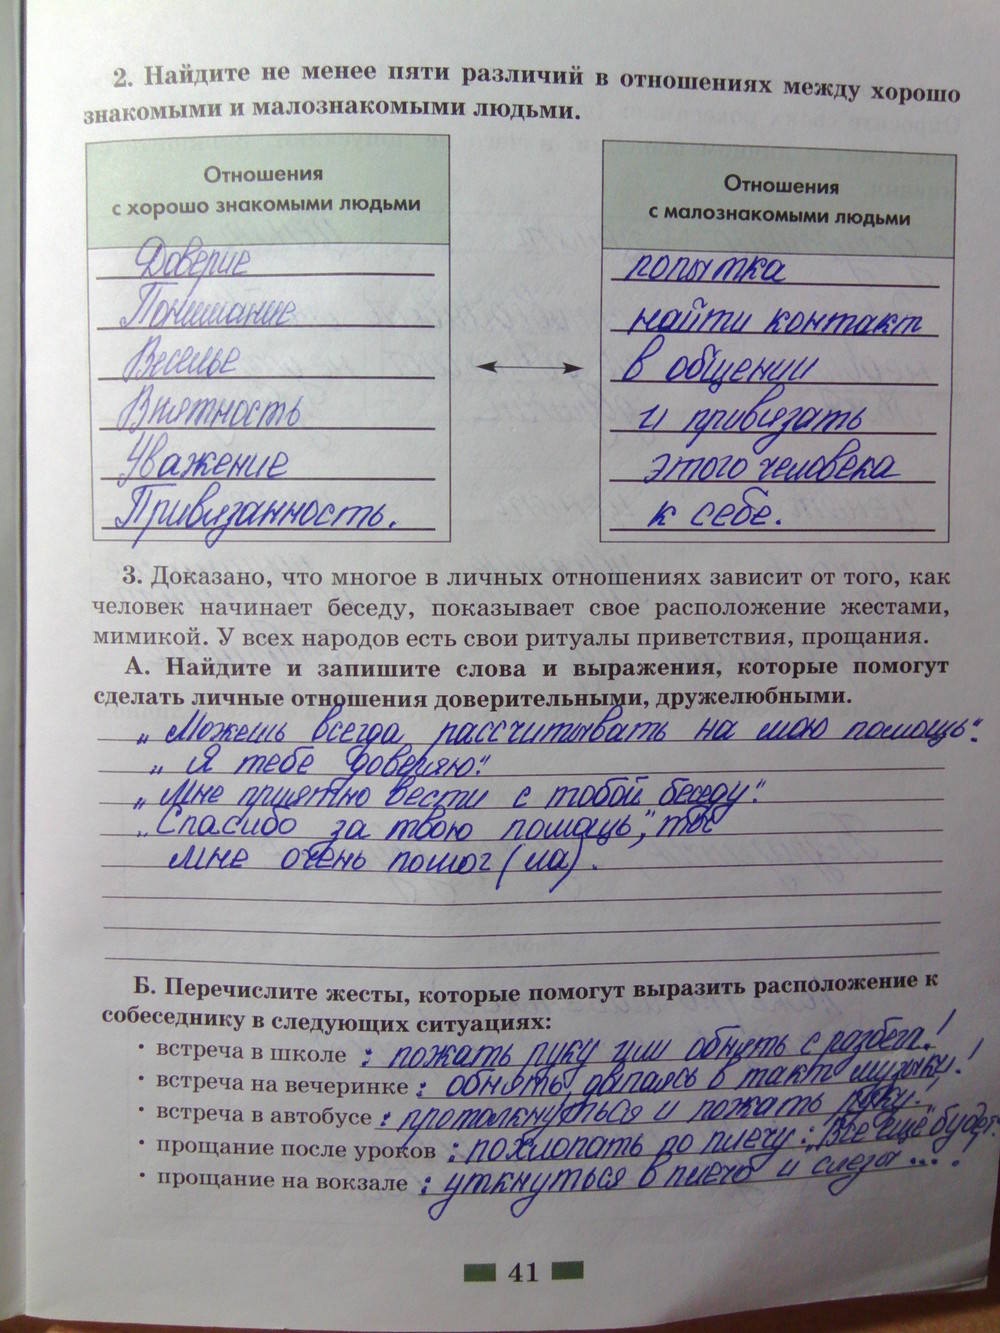 2. Найдите не менее пяти различий в отношениях между хорошо
знакомыми и малознакомыми людьми.
Отношения
с хорошо знакомыми людьми
Доверие
Понимание
Веселье
Внятность
Уважение
Привязанность.
Отношения
с малознакомыми людьми
попытка
найти контакт
в общении
и привязать
этого человека
к себе.
3. Доказано, что многое в личных отношениях зависит от того, как
человек начинает беседу, показывает свое расположение жестами,
мимикой. У всех народов есть свои ритуалы приветствия, прощания.
А. Найдите и запишите слова и выражения, которые помогут
сделать личные отношения доверительными, дружелюбными.
„Можешь всегда рассчитывать на мою помощь“.
„Я тебе доверяю“.
„Мне приятно вести с тобой беседу“.
„Спасибо за твою помощь“, ты
мне очень помог(ла).
Б. Перечислите жесты, которые помогут выразить расположение к
собеседнику в следующих ситуациях:
• встреча в школе : пожать руку или обнять с разбега!
• встреча на вечеринке : обнять, двигаясь в такт музыки!
• встреча в автобусе : протолкнуться и пожать руку.
• прощание после уроков : похлопать по плечу: „Все ещё будет“.
• прощание на вокзале : уткнуться в плечо и слеза ....
41